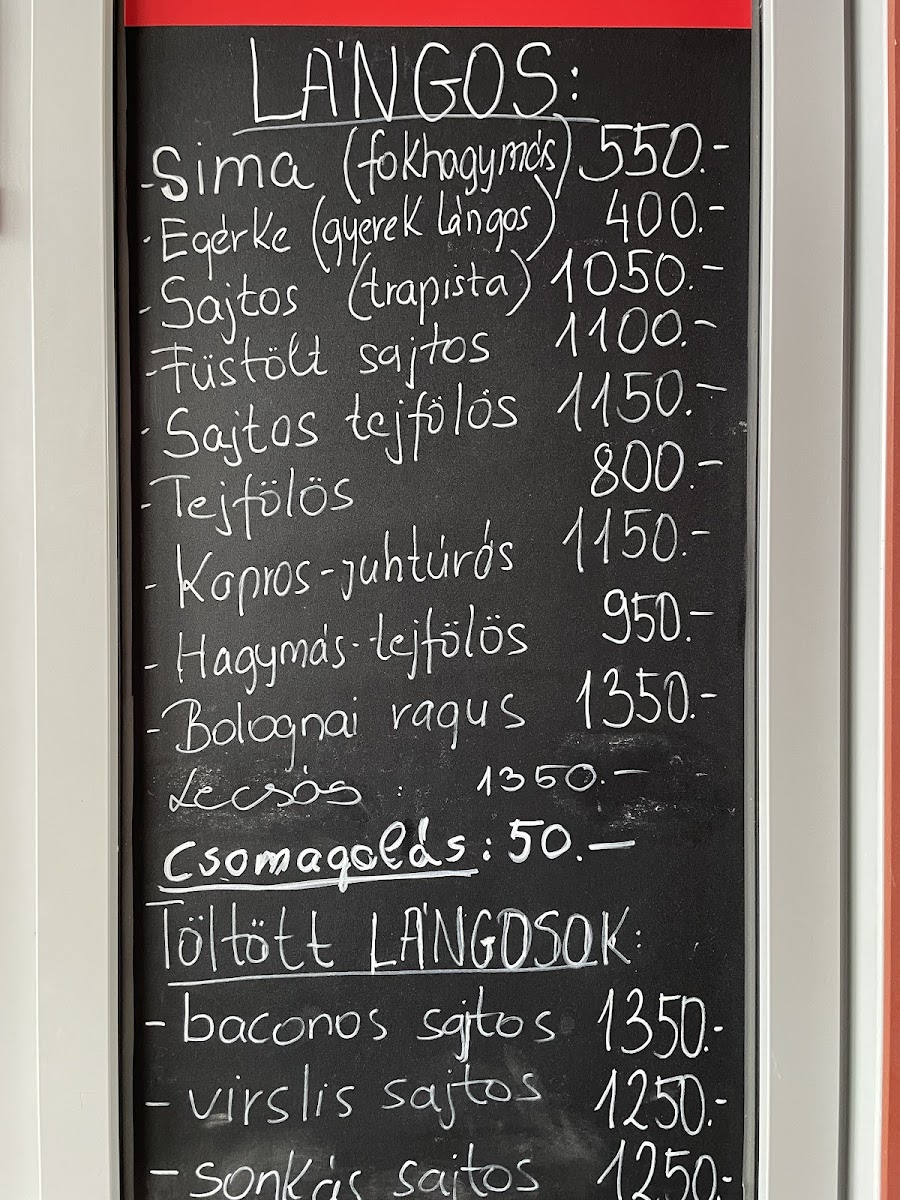 LÁNGOS:
-Sima (fokhagymás) 550.-
-Egérke (gyerek lángos) 400.-
-Sajtos (trapista) 1050.-
-Füstölt sajtos 1100.-
-Sajtos tejfölös 1150.-
-Tejfölös 800.-
-Kapros-juhtúrós 1150.-
-Hagymás-tejfölös 950.-
-Bolognai ragus 1350.-
Lecsós : 1350.-
Csomagolás: 50.-
Töltött LÁNGOSOK:
-baconos sajtos 1350.-
-virslis sajtos 1250.-
-sonkás sajtos 1250.-